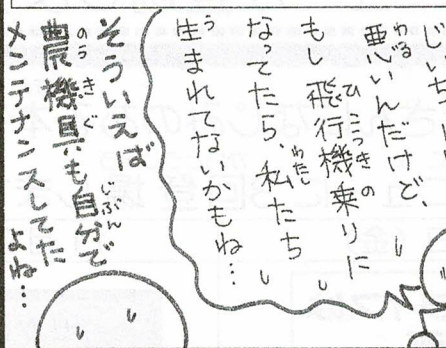 悪いんだけど、
もし飛行機乗りに
なってたら、私たち
生まれてないかもね…
そういえば
農機具も自分で
メンテナンスしてた
よね…